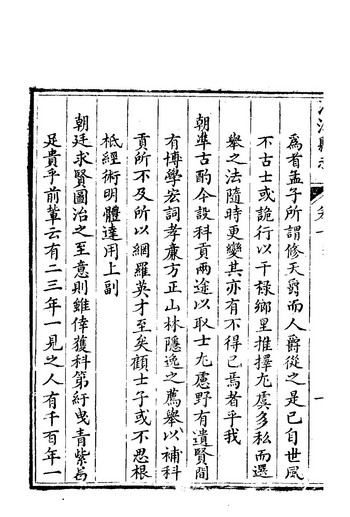 爲者孟子所謂修天爵而人爵從之是已自世風
不古士或詭行以干祿鄉里推擇尤虞多私而選
舉之法隨時更變其亦有不得已焉者乎我
朝準古酌今設科貢兩途以取士尤慮野有遺賢間
有博學宏詞孝廉方正山林隱逸之薦舉以補科
貢所不及所以網羅英才至矣顧士子或不思根
柢經術明體達用上副
朝廷求賢圖治之至意則雖倖獲科第紆曳青紫曷
足貴乎前輩云有二三年一見之人有千百年一